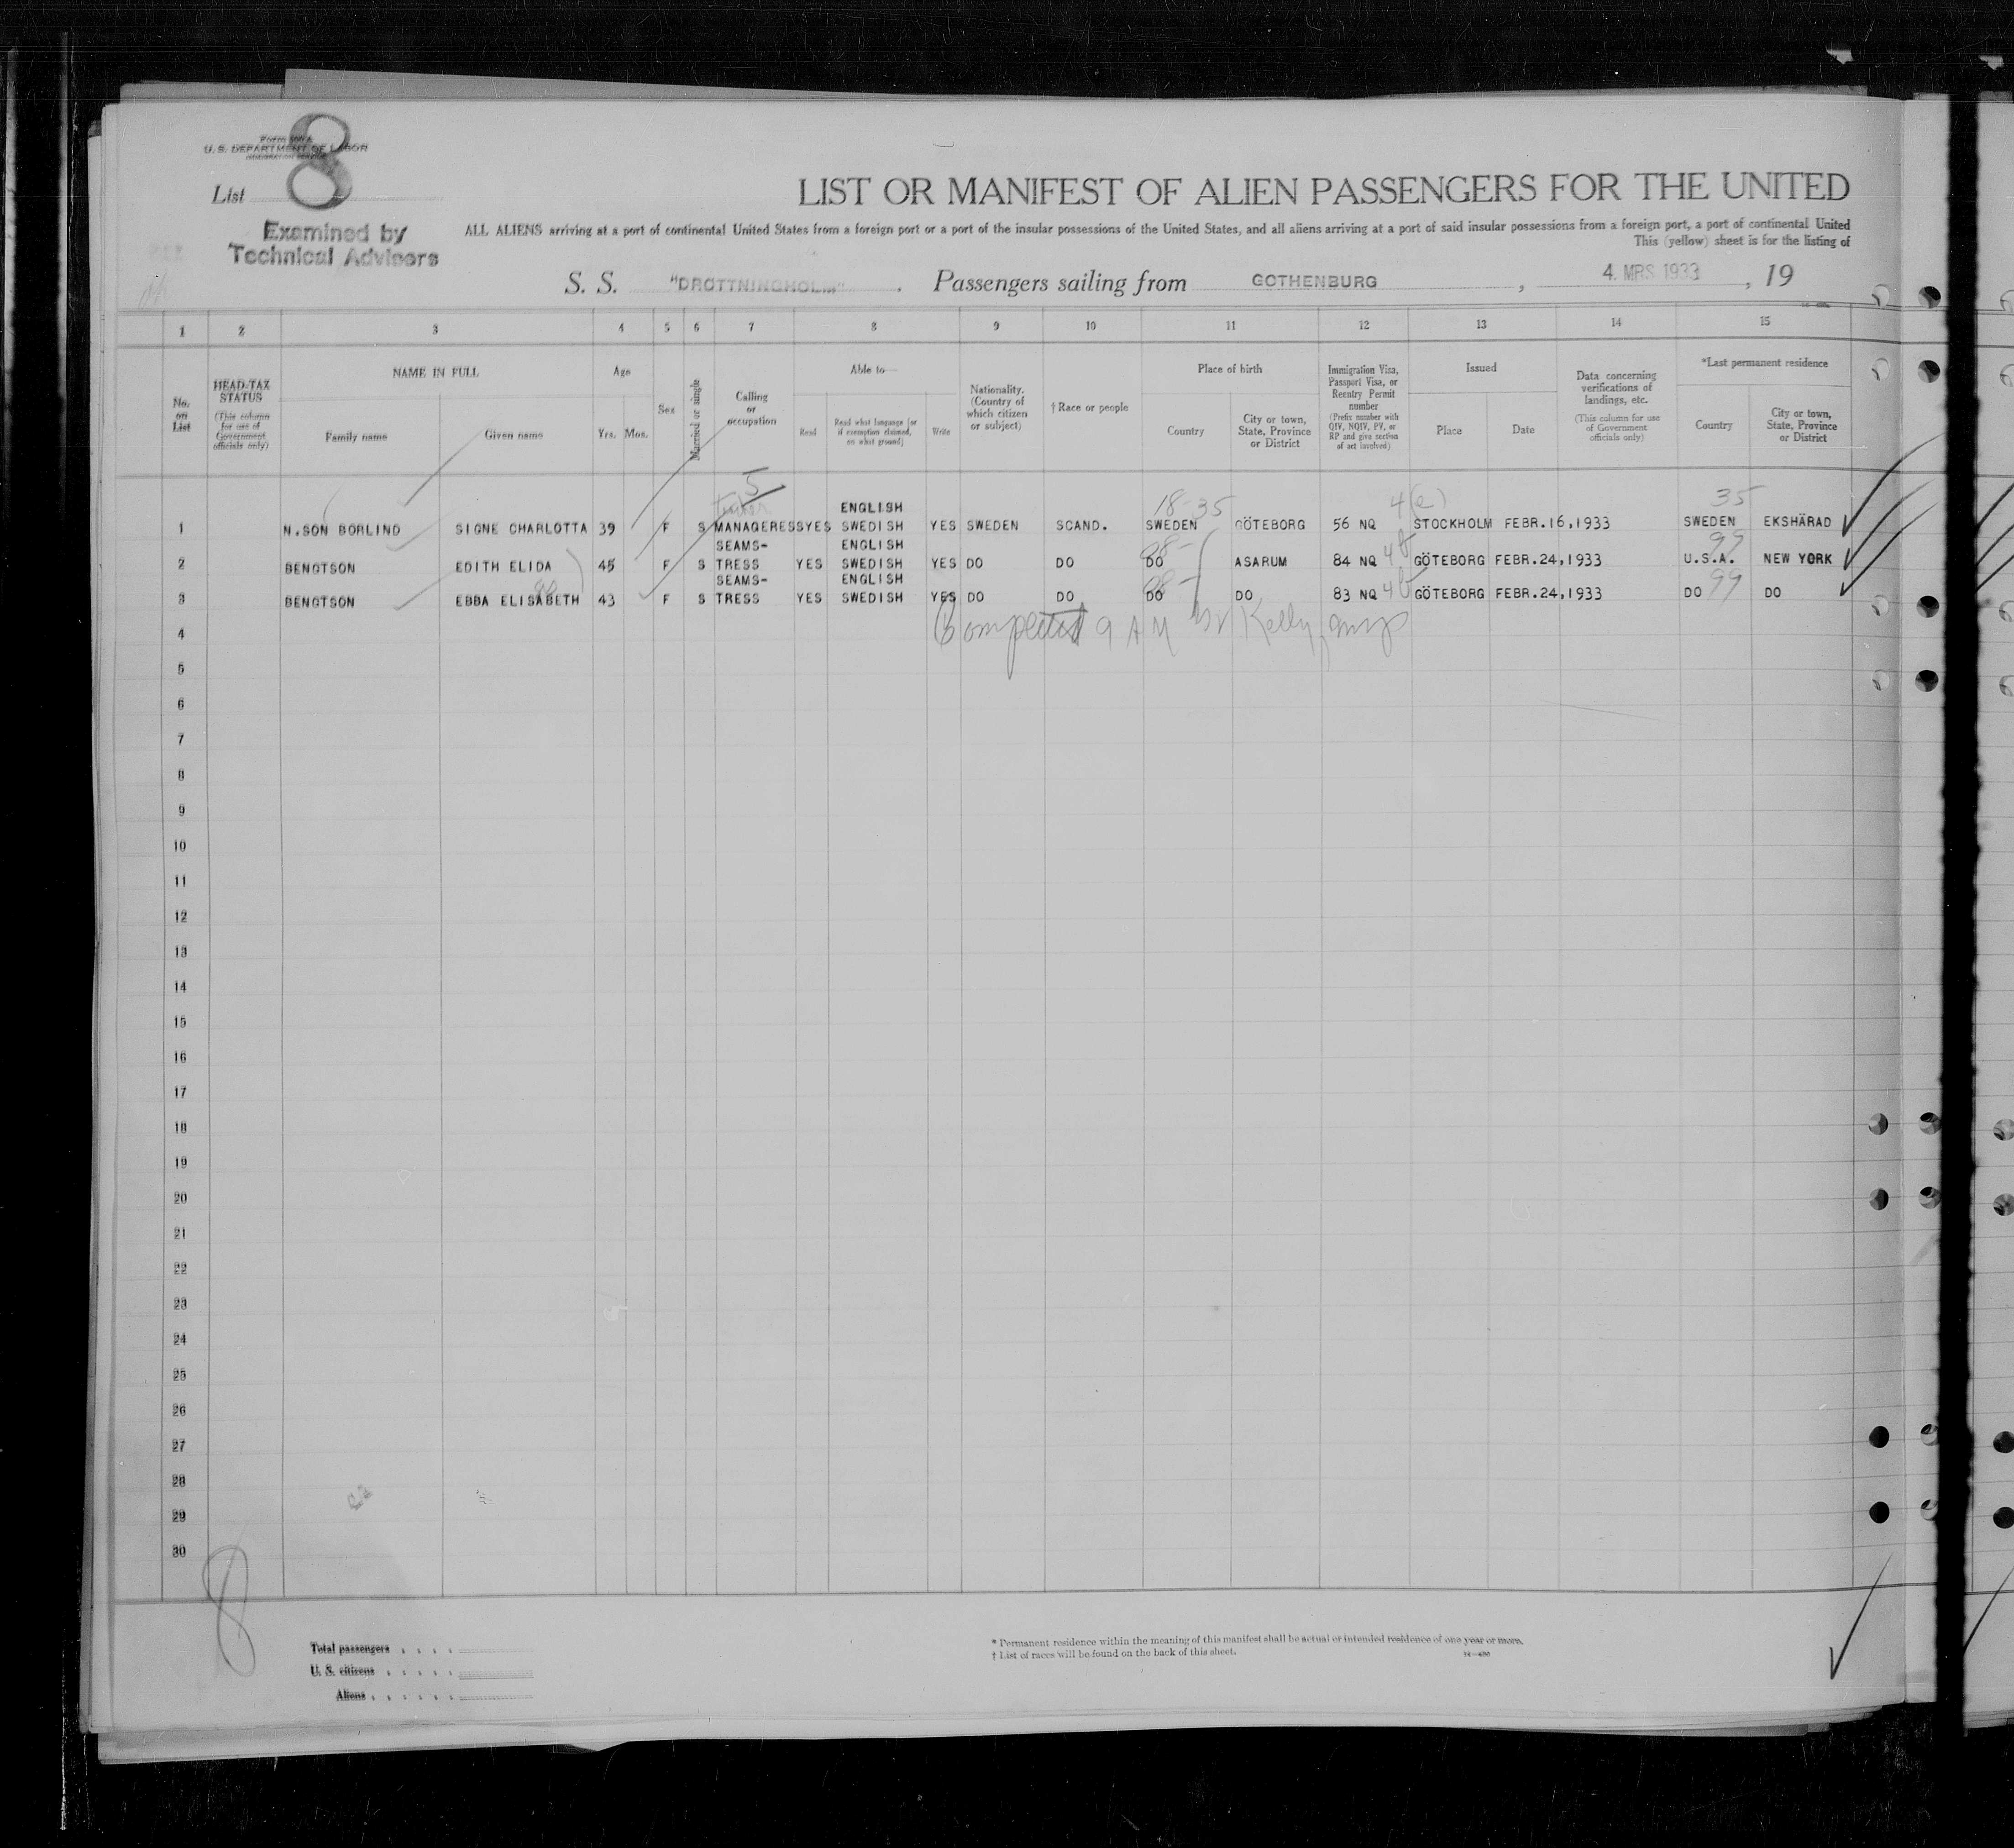 Form 500 A
U. S. DEPARTMENT OF LABOR
IMMIGRATION SERVICE
8
List
Examined by
Technical Advisors
LIST OR MANIFEST OF ALIEN PASSENGERS FOR THE UNITED
ALL ALIENS arriving at a port of continental United States from a foreign port or a port of the insular possessions of the United States, and all aliens arriving at a port of said insular possessions from a foreign port, a port of continental United
This (yellow) sheet is for the listing of
S. S. "DROTTNINGHOLM" . Passengers sailing from GOTHENBURG , 4. MRS 1933 , 19
1 2 3 4 5 6 7 8 9 10 11 12 13 14 15
No. on List
HEAD-TAX STATUS (This column for use of Government officials only)
NAME IN FULL
Family name Given name
Age
Yrs. Mos.
Sex
Married or single
Calling or occupation
Able to—
Read Read what language [or if exemption claimed, on what ground] Write
Nationality. (Country of which citizen or subject)
† Race or people
Place of birth
Country City or town, State, Province or District
Immigration Visa, Passport Visa, or Reentry Permit number (Prefix number with QIV, NQIV, PV, or RP and give section of act involved)
Issued
Place Date
Data concerning verifications of landings, etc. (This column for use of Government officials only)
*Last permanent residence
Country City or town, State, Province or District
5
18-35 4(e) 35
ENGLISH
1 N.SON BORLIND SIGNE CHARLOTTA 39 F S MANAGERESS YES SWEDISH YES SWEDEN SCAND. SWEDEN GÖTEBORG 56 NQ STOCKHOLM FEBR.16,1933 SWEDEN EKSHÄRAD
SEAMS- ENGLISH
2 BENGTSON EDITH ELIDA 45 F S TRESS YES SWEDISH YES DO DO DO ASARUM 84 NQ 4b GÖTEBORG FEBR.24,1933 U.S.A. 99 NEW YORK
SEAMS- ENGLISH
3 BENGTSON EBBA ELISABETH 43 F S TRESS YES SWEDISH YES DO DO DO DO 83 NQ 4b GÖTEBORG FEBR.24,1933 DO 99 DO
4 Completed 9 AM Kelly
5
6
7
8
9
10
11
12
13
14
15
16
17
18
19
20
21
22
23
24
25
26
27
28
29
30
8
Total passengers
U. S. citizens
Aliens
* Permanent residence within the meaning of this manifest shall be actual or intended residence of one year or more.
† List of races will be found on the back of this sheet.